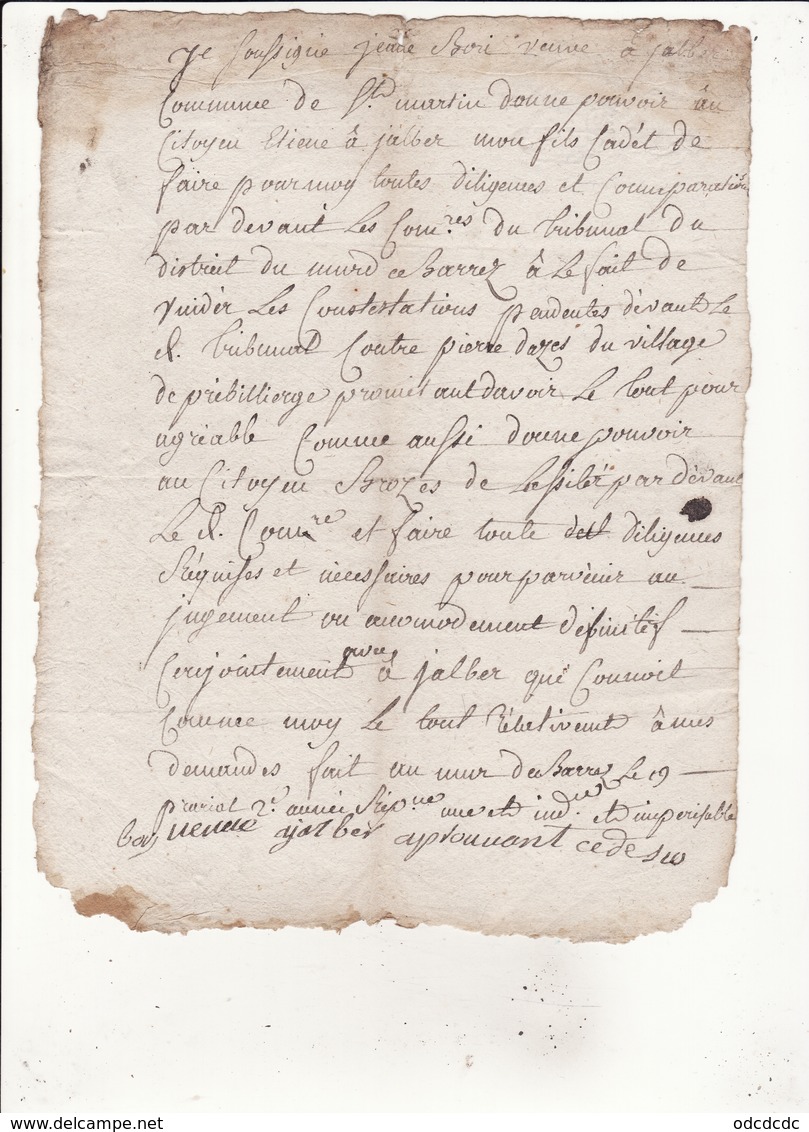 Je soussigné jeane Bori veuve à jalber
Commune de St. martin donne pouvoir au
Citoyen Etiene à jalber mon fils Cadét de
faire pour moy toutes diligences et Comparations
par devant les Com.res du tribunal du
district du murd ce Barrez à le fait de
vuidér les Constestations pendentes dévant le
d. tribunal Contre pierre dazes du village
de prebillierge promét ant davoir le tout pour
agréable Comme aussi donne pouvoir
au Citoyen Brozes de par dévant
le d. Com.re et faire toute diligences
Réquises et nécessaires pour parvénir au
jugement ou acomodement définitéf
Cenjointement avec à jalber qué Connoit
Comme moy le tout Rébetivemt à mes
demandes fait au mur de Barrez le 19
prarial 2.e année Rép.ne une et ind.ue et imperisable
bory veuve jalber aprouvant cedesus
odcdcdc